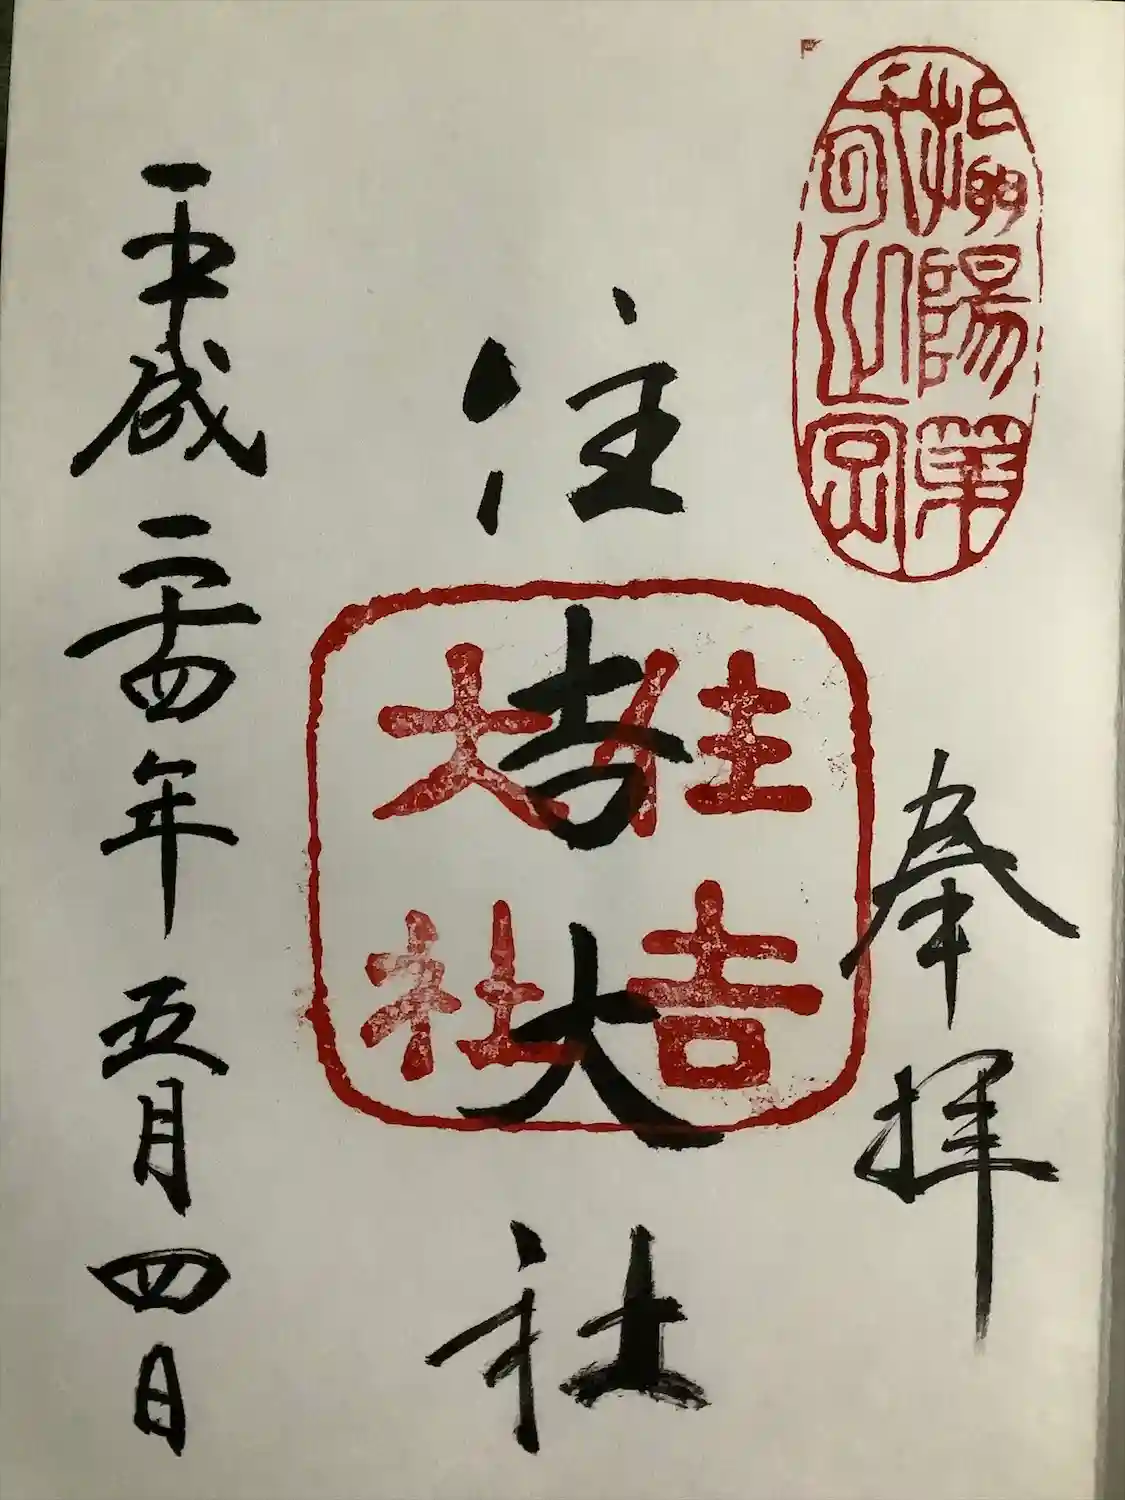 攝陽第
之宮
奉拝
住吉大社
住吉
大社
平成二十四年五月四日